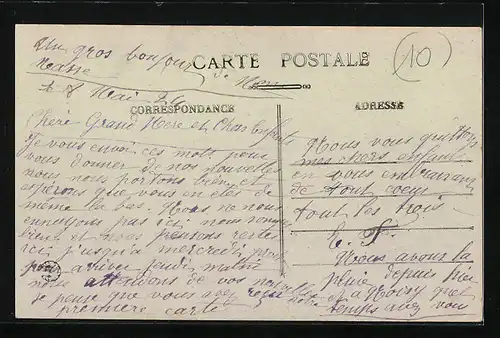 Un gros bonjour
de Nous
CARTE POSTALE
10
le 8 Mai 24
CORRESPONDANCE
ADRESSE
Chère Grand Mère et Chers Enfants
Je vous envoi ces mots pour
vous donner de nos nouvelles
nous nous portons bien et
espérons que vous en de
même la bas. Nous ne nous
ennuyons pas ici nous sommes
bien et nous pensons rester
ici jusqu'à mercredi pour
pour arrivé jeudi matin
nous attendons de vos nouvelles
je pense que vous avez reçu notre
première carte
Nous vous quittons
mes chers enfants
en vous embrassant
de tout coeur
tout les trois
E. F.
Nous avons la
pluie depuis hier
et a Noisy quel
temps avez vous